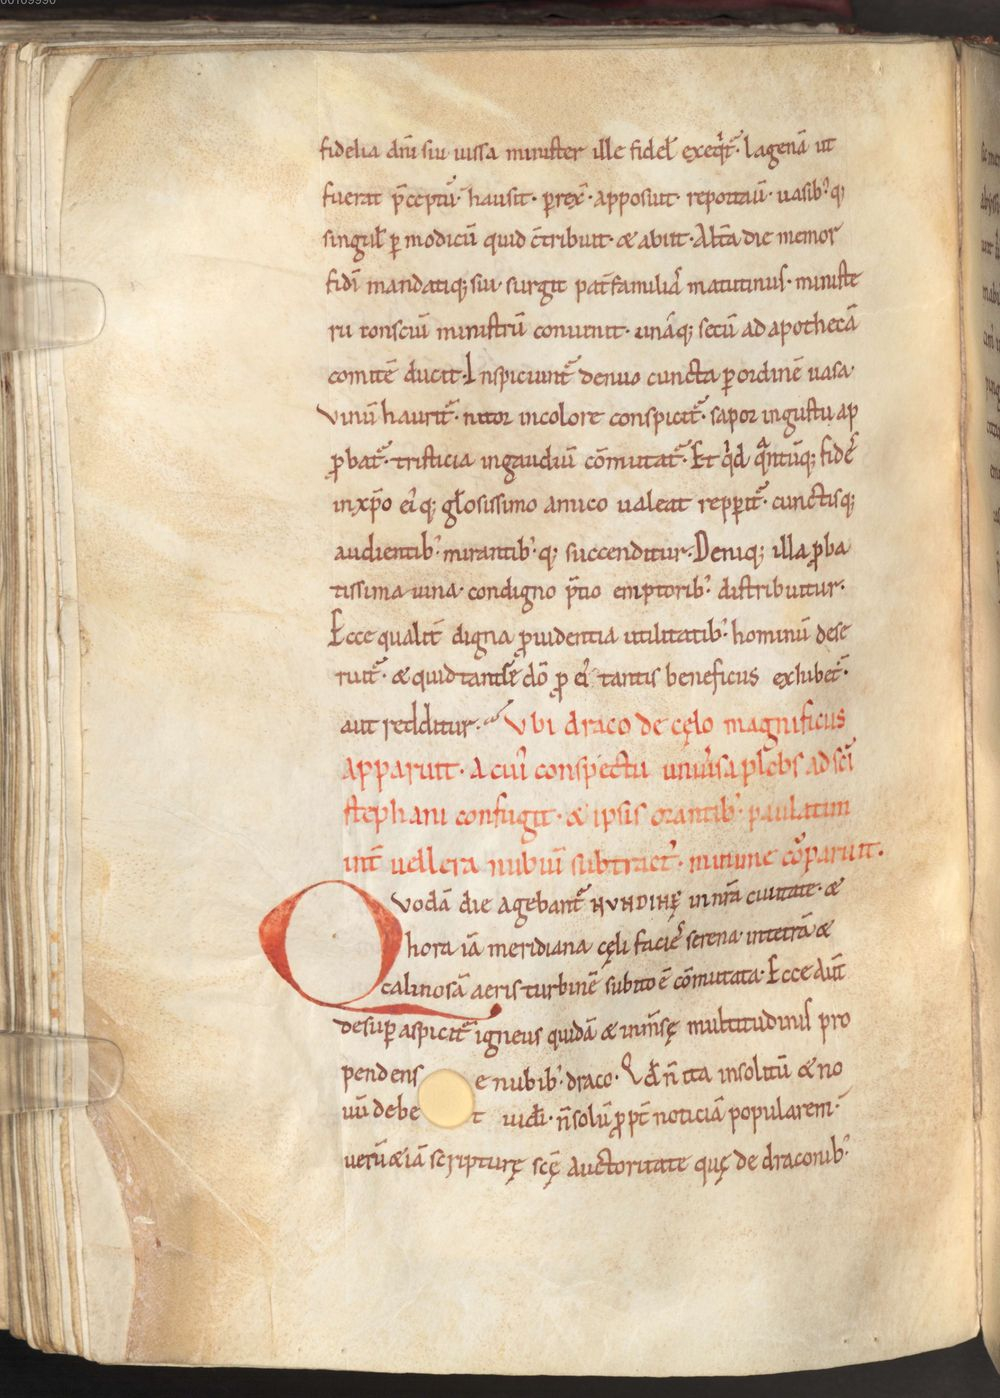 fidelia dn̄i sui iussa minister ille fidel̄ exeq̇t̃· lagenā ut
fuerat p̄ceptū· hausit· prexẽ· apposuit· reportauit· uasib;ʾ q;
singul̄ ꝑ modicū quid c̄tribuit· & abiit· Alt̄a die memor
fidī mandatiq; sui· surgit pat̄familiaʾ matutinus· ministe
rii conscium ministrū conuenit· unāq; secū ad apothecā
comitē ducit· Inspiciunt̃ denuo cuncta ꝑordinē uasa·
vinū haurit̃· nitor incolore conspicit̃· sapor ingustu ap
ꝓbat̃· tristicia ingaudiū cōmutat̃· Et q̇d q̃ntūq; fideʾ
inxp̄o eiʾq; gl̄osissimo amico ualeat repperit̃· cunctisq;
audientib;ʾ mirantib;ʾ q; succenditur· Deniq; illa ꝓba
tissima uina· condigno p̄tio emptorib;ʾ distribuitur·
Ecce qualit̃ digna ꝓuidentia utilitatib;ʾ hominū dese
ruit̃· & quid tantsē dō ꝓ eiʾ tantis beneficiis exhibet̃·
aut redditur· Vbi draco de cęlo magnificus
apparuit· A cuiʾ conspectu uniu̾sa plebs ad scī
stephani confugit· & ipsis orantib;ʾ paulatim
int̄ uellera nubiū subtract̾· minime cōparuit·
Quodā die agebant̃ NVNDINĘ in nr̄a ciuitate· &
hora iā meridiana cęli facieʾ serena· intetrā &
calinosā aeris turbinē subito ē cōmutata· Ecce aūt
desuꝑ aspicit̃ igneus quidā & inm̄sę multitudinis pro
pendens e nubib;ʾ draco· Qd̄ n̄ ita insolitū & no
uū debet uidi· n̄ solū ꝓpt̄ noticiā popularem·
uerū & iā scripturę scę̄ auctoritate quę de draconib;ʾ